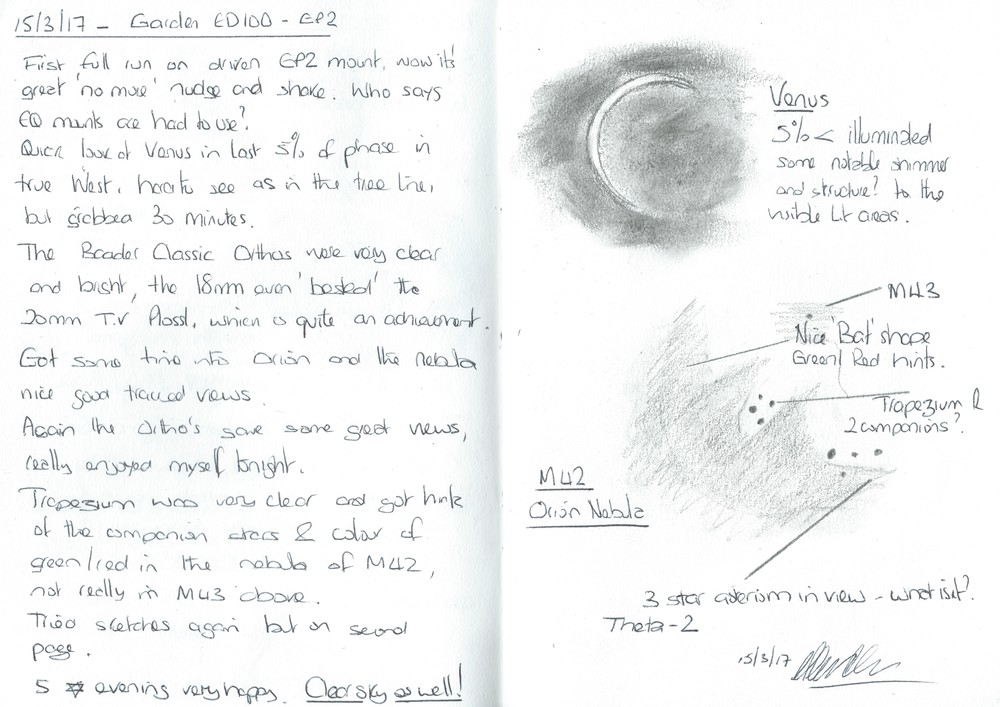 15/3/17 - Garden ED100 - EP2
First full run on driven EP2 mount, now it's
great 'no more' nudge and shake. Who says
EQ mants are had to use?
Quick look at Venus in last 5% of phase in
true West, hard to see as in the tree line,
but grabbed 30 minutes.
The Baader Classic Orthos were very clear
and bright, the 18mm even 'bested' the
20mm T.V Plossl, which is quite an achievement.
Got some time into Orion and the nebula
nice good tracked views.
Again the Ortho's gave some great views,
really enjoyed myself tonight.
Trapezium was very clear and got hink
of the companion stars & color of
green/red in the nebula of M42,
not really in M43 above.
Tried sketches again but on second
page.
5 ✡ evening very happy. Clear sky as well!
Venus
5% < illuminated
some notable shimmer
and structure? to the
visible Lit areas.
M43
Nice 'Bat' shape
Green/Red hints.
Trapezium &
2 companions?
M42
Orion Nebula
3 star asterism in view - what is it?
Theta-2
15/3/17